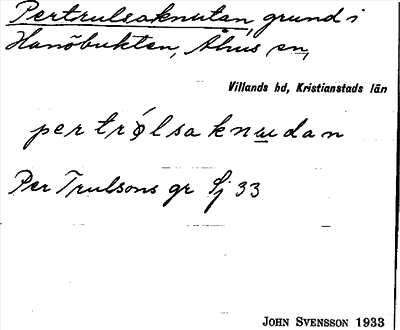 Pertrulsaknutan, grund i
Hanöbukten, Åhus sn,
Villands hd, Kristianstads län
pertrǿlsaknudan
Per Trulsons gr Sj 33
JOHN SVENSSON 1933